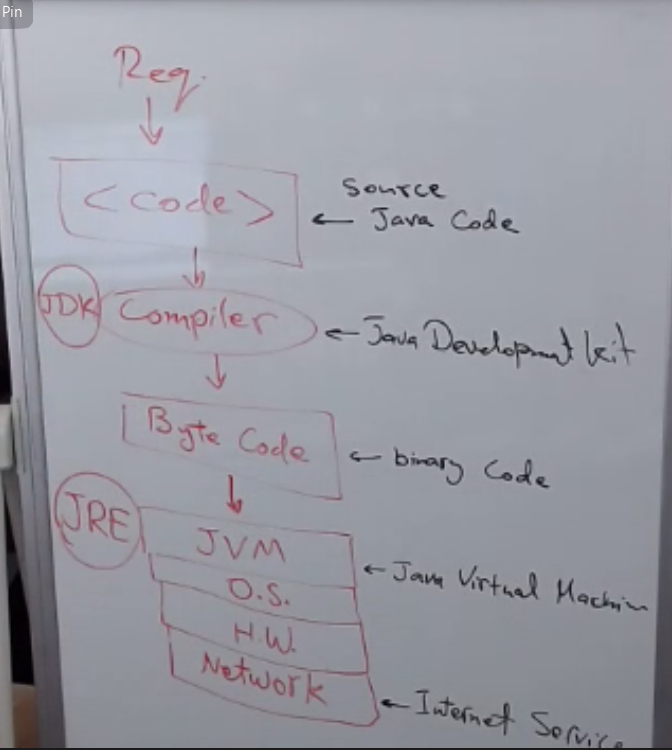 Pin
Req.
<code>
source
← Java Code
JDK
Compiler
← Java Development kit
Byte Code
← binary Code
JRE
JVM
← Java Virtual Machin
O.S.
H.W.
Network
← Internet Service